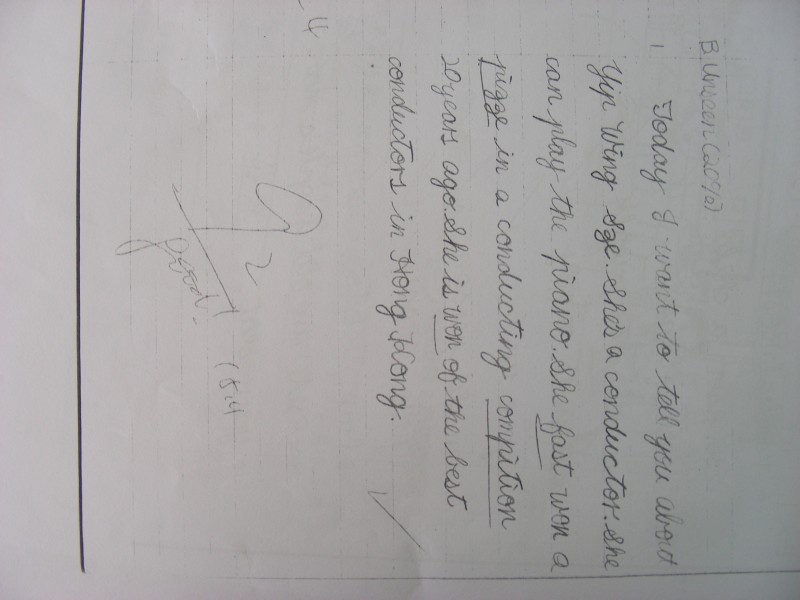 B. Unseen (20%)
1. Today I want to tell you about
Yip Wing Sze. She's a conductor. She
can play the piano. She fast won a
pizze in a conducting compition
20 years ago. She is won of the best
conductors in Hong Kong.
-4
92
good!